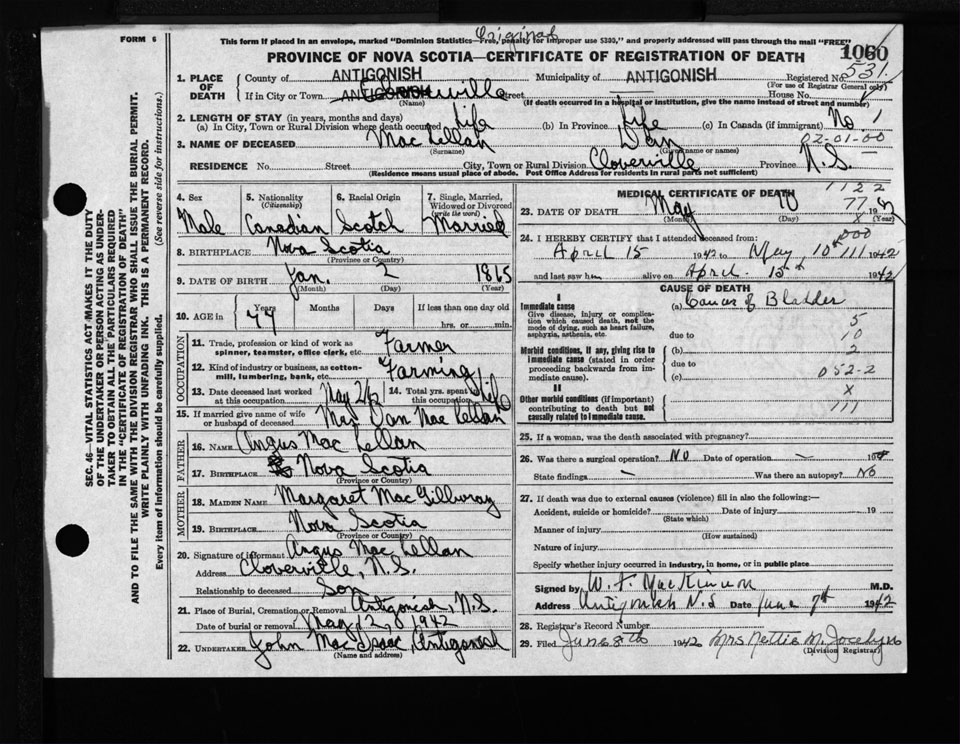 FORM 6
Original
This form if placed in an envelope, marked "Dominion Statistics—Free, penalty for improper use $300," and properly addressed will pass through the mail "FREE"
PROVINCE OF NOVA SCOTIA—CERTIFICATE OF REGISTRATION OF DEATH
1060
SEC. 46—VITAL STATISTICS ACT MAKES IT THE DUTY
OF THE UNDERTAKER OR PERSON ACTING AS UNDER-
TAKER TO OBTAIN ALL THE PARTICULARS REQUIRED
IN THE "CERTIFICATE OF REGISTRATION OF DEATH"
AND TO FILE THE SAME WITH THE DIVISION REGISTRAR WHO SHALL ISSUE THE BURIAL PERMIT.
WRITE PLAINLY WITH UNFADING INK. THIS IS A PERMANENT RECORD.
Every item of information should be carefully supplied. (See reverse side for instructions.)
1. PLACE OF DEATH County of ANTIGONISH Municipality of ANTIGONISH Registered No. 531
(For use of Registrar General only)
If in City or Town ANTIGONISH Cloverville Street House No.
(Name) (If death occurred in a hospital or institution, give the name instead of street and number)
2. LENGTH OF STAY (in years, months and days)
(a) In City, Town or Rural Division where death occurred Life (b) In Province Life (c) In Canada (if immigrant) No 1
02-01-00
3. NAME OF DECEASED Mac Lellan Dan
(Surname) (Given name or names)
RESIDENCE No. Street City, Town or Rural Division Cloverville Province N.S.
(Residence means usual place of abode. Post Office Address for residents in rural parts not sufficient)
4. Sex 5. Nationality (Citizenship) 6. Racial Origin 7. Single, Married, Widowed or Divorced (write the word)
Male Canadian Scotch Married
8. BIRTHPLACE Nova Scotia
(Province or Country)
9. DATE OF BIRTH Jan. 2 1865
(Month) (Day) (Year)
10. AGE in Years 77 Months Days If less than one day old
hrs. or min.
OCCUPATION
11. Trade, profession or kind of work as spinner, teamster, office clerk, etc. Farmer
12. Kind of industry or business, as cotton-mill, lumbering, bank, etc. Farming
13. Date deceased last worked at this occupation May 2/42 14. Total yrs. spent in this occupation Life
15. If married give name of wife or husband of deceased Mrs Dan Mac Lellan
FATHER
16. NAME Angus Mac Lellan
17. BIRTHPLACE Nova Scotia
(Province or Country)
MOTHER
18. MAIDEN NAME Margaret MacGillivray
19. BIRTHPLACE Nova Scotia
(Province or Country)
20. Signature of informant Angus Mac Lellan
Address Cloverville, N.S.
Relationship to deceased Son
21. Place of Burial, Cremation or Removal Antigonish, N.S.
Date of burial or removal May 12, 1942
22. UNDERTAKER John Mac Isaac, Antigonish
(Name and address)
MEDICAL CERTIFICATE OF DEATH
1122
23. DATE OF DEATH May 10 77 1942
(Month) (Day) x (Year)
24. I HEREBY CERTIFY that I attended deceased from: 000
April 15 1942 to May 10th 111 1942
and last saw him alive on April 15th 1942
CAUSE OF DEATH
I
Immediate cause (a) Cancer of Bladder
Give disease, injury or complication which caused death, not the mode of dying, such as heart failure, asphyxia, asthenia, etc.
5
due to 10
Morbid conditions, if any, giving rise to immediate cause (stated in order proceeding backwards from immediate cause).
(b) 2
due to 052-2
(c)
II
x
Other morbid conditions (if important) contributing to death but not causally related to immediate cause. 111
25. If a woman, was the death associated with pregnancy?
26. Was there a surgical operation? No Date of operation — 194
State findings — Was there an autopsy? No
27. If death was due to external causes (violence) fill in also the following:—
Accident, suicide or homicide? Date of injury 19
(State which)
Manner of injury
(How sustained)
Nature of injury
Specify whether injury occurred in industry, in home, or in public place
Signed by W. F. MacKinnon M.D.
Address Antigonish N.S Date June 7th 1942
28. Registrar's Record Number
29. Filed June 8th 1942 Mrs Nettie M. Jocelyn
(Division Registrar)